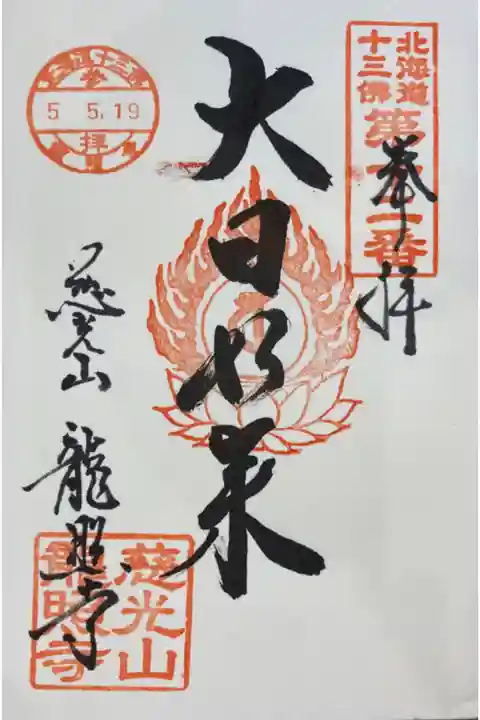 北海道
十三佛
第十一番
奉拝
大日如来
慈光山
龍照寺
参
5.5.19
拝
慈光山
龍照寺